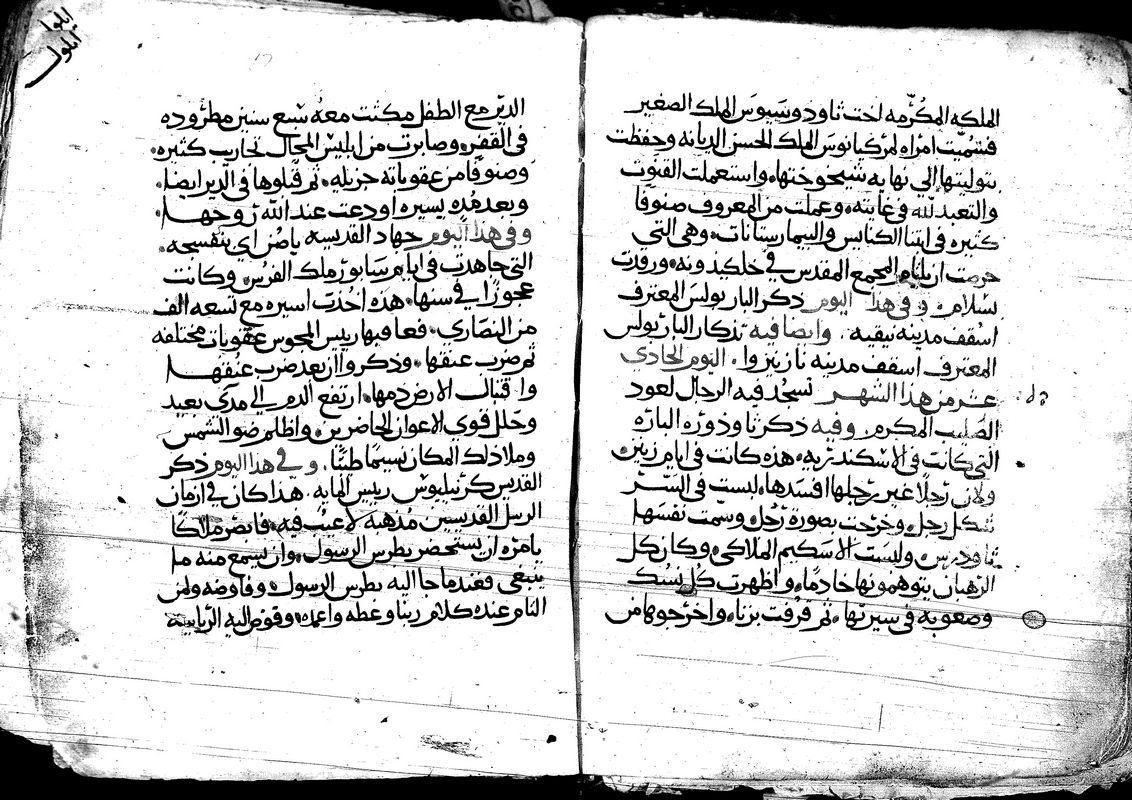 الملكه المكرمه اخت تاودوسيوس الملك الصغير
فسميت امراه لمركيانوس الملك الحسن الديانه وحفظت
بتوليتها الي نهايه شيخوختها، واستعملت القنوت
والتعبد لله في غايته، وعملت من المعروف صنوفا
كثيره في ابتنا الكنايس والبيمارستانات، وهي التي
حرصت ان يلتام المجمع المقدس في خلكيدونه، ورقدت
بسلام. وفي هذا اليوم ذكر البار بولس المعترف
اسقف مدينه نيقيه. وايضا فيه تذكار البار بولس
المعترف اسقف مدينه نازينزوا. اليوم الحادي
عشر من هذا الشهر نسجد فيه الرجال لعود
الصليب المكرم. وفيه ذكر تاودوره الباره
التي كانت في الاسكندريه، هذه كانت في ايام زينن
ولان رجلا غير رجلها افسدها، لبست في السر
شكل رجل، وخرجت بصورة رجل، وسمت نفسها
تاودرس، ولبست الاسكيم الملاكي، وكان كل
الرهبان يتوهمونها خادما، واظهرت كل نسك
وصعوبه في سيرتها، ثم قرفت بزناء، واخرجوها من
ايلول
الدير مع الطفل مكثت معه سبع سنين مطروده
في القفر، وصابرت من ابليس المحال تجارب كثيره،
وصنوفا من عقوباته جزيله، ثم قبلوها في الدير ايضا،
وبعد مده يسيره اودعت عند الله روحها
وفي هذا اليوم جهاد القديسه ياض اي بنفسجه،
التي جاهدت في ايام سابور ملك الفرس، وكانت
عجوزا في سنها، هذه اخذت اسيره مع تسعه الف
من النصاري، فعاقبها رييس المجوس عقوبات مختلفه
ثم ضرب عنقها، وذكروا ان بعد ضرب عنقها
واقتبال الارض دمها، ارتفع الدم الي مدي بعيد
وحلل قوي الاعوان الحاضرين، واظلم ضو الشمس
وملا ذلك المكان نسيما طيبا، وفي هذا اليوم ذكر
القديس كرنيليوس رييس المايه، هذا كان في ازمان
الرسل القديسين مذهبه لا عيب فيه، فابصر ملاكا
يامره ان يستحضر بطرس الرسول، وان يسمع منه ما
ينبغي، فعندما جا اليه بطرس الرسول، وفاوضه ولمن
التام عنده كلام ربنا وعظه واعمده، وقوض اليه الرياسه